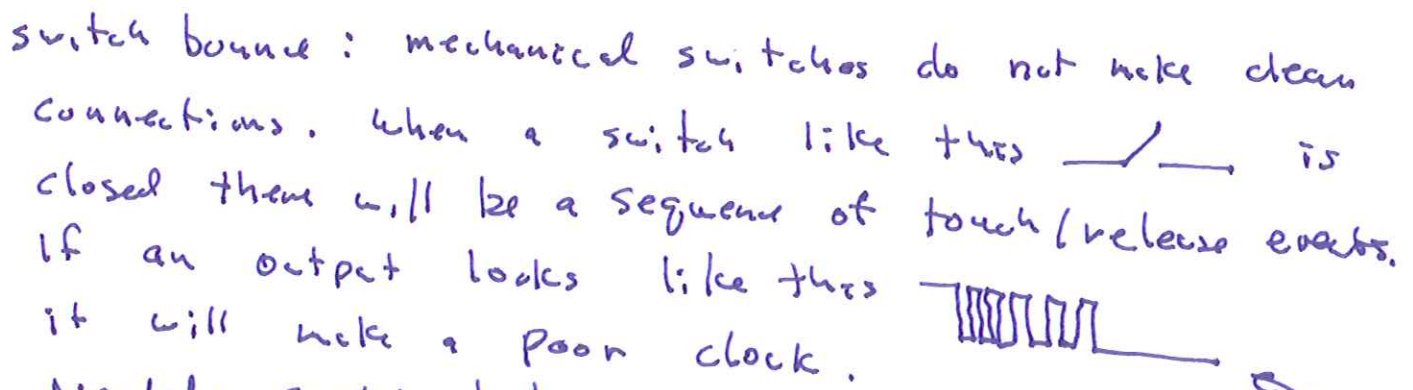 switch bounce : mechanical switches do not make clean
connections. when a switch like this is
closed there will be a sequence of touch/release events.
If an output looks like this
it will make a poor clock.